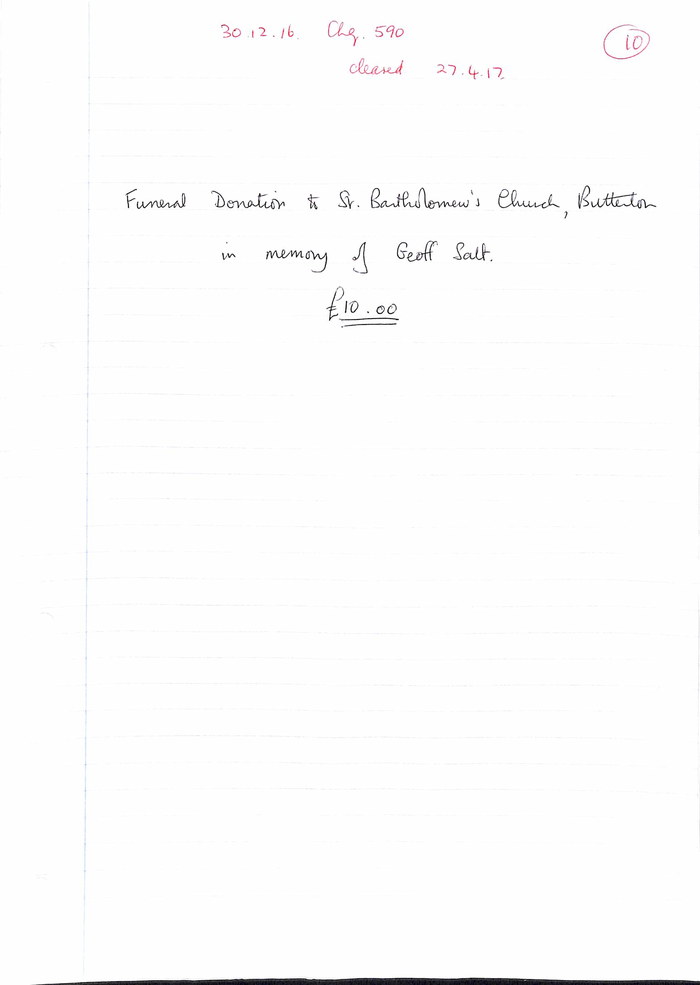 30.12.16. Chq. 590
10
cleared 27.4.17
Funeral Donation to St. Bartholomew's Church, Butterton
in memory of Geoff Salt.
£10.00